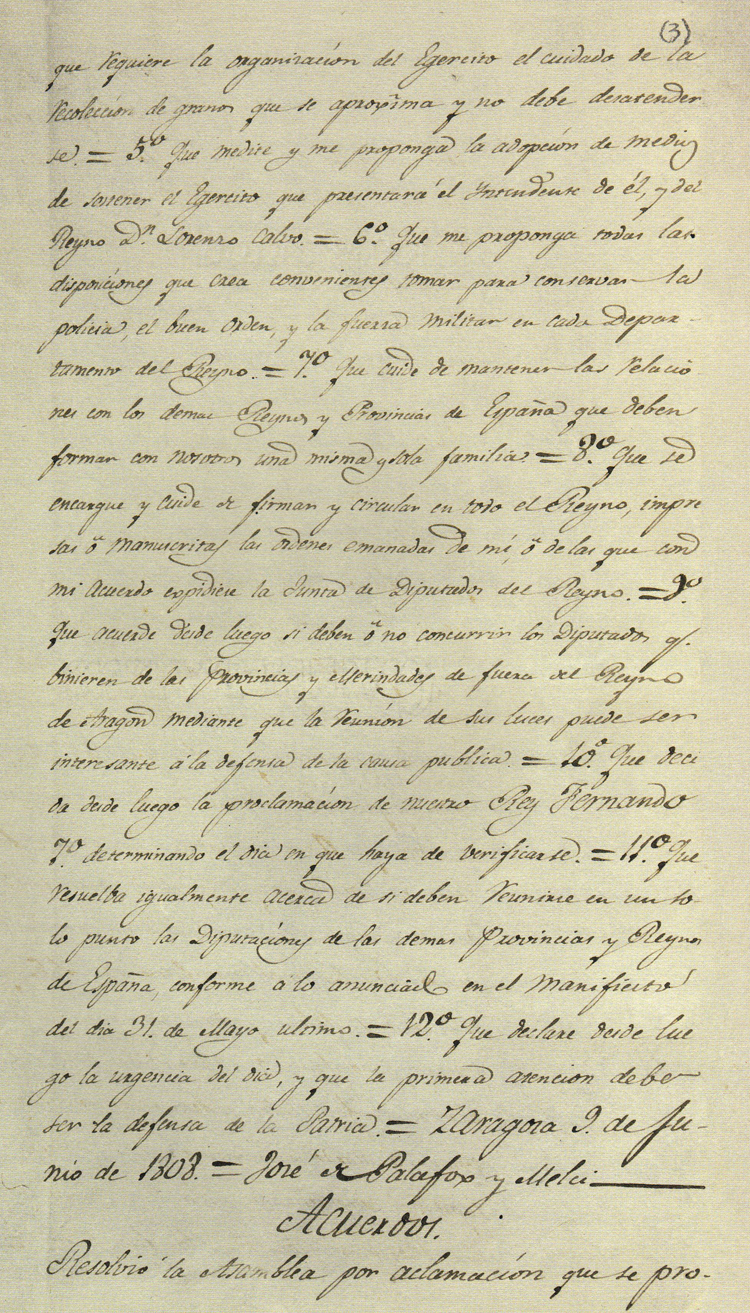 (3)
que requiere la organización del Egercito el cuidado de la
recolección de granos que se aproxîma y no debe desatender
se. = 5º. Que medite y me proponga la adopción de medios
de sostener el Egercito que presentará el Intendente de él, y del
Reyno Dn. Lorenzo Calvo. = 6º. Que me proponga todas las
disposiciones que crea convenientes tomar para conservar la
policia, el buen orden, y la fuerza militar en cada Depar-
tamento del Reyno. = 7º. Que cuide de mantener las relacio
nes con los demas Reynos y Provincias de España que deben
formar con nosotros una misma y sola familia. = 8º. Que se
encargue y cuide de firmar y circular en todo el Reyno, impre
sas ô manuscritas las ordenes emanadas de mí, ô de las que con
mi acuerdo expidiese la Junta de Diputados del Reyno. = 9º.
Que acuerde desde luego si deben ô no concurrir los Diputados q.
binieren de las Provincias y Merindades de fuera del Reyno
de Aragon mediante que la reunión de sus luces puede ser
interesante á la defensa de la causa publica. = 10º. Que deci
da desde luego la proclamación de nuestro Rey Fernando
7º determinando el dia en que haya de verificarse. = 11º. Que
resuelba igualmente acerca de si deben reunirse en un so-
lo punto las Diputaciónes de las demas Provincias y Reynos
de España, conforme a lo anunciado en el Manifiesto
del dia 31. de Mayo ultimo. = 12º. Que declare desde lue
go la urgencia del dia, y que la primera atencion debe
ser la defensa de la Patria. = Zaragoza 9. de Ju-
nio de 1808. = José de Palafox y Melci
Acuerdos.
Resolvió la Asamblea por aclamación que se pro-